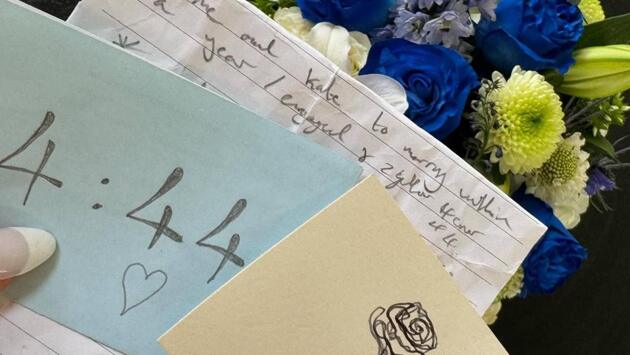 me and Kate to marry within
a year / engaged &
44.
4:44